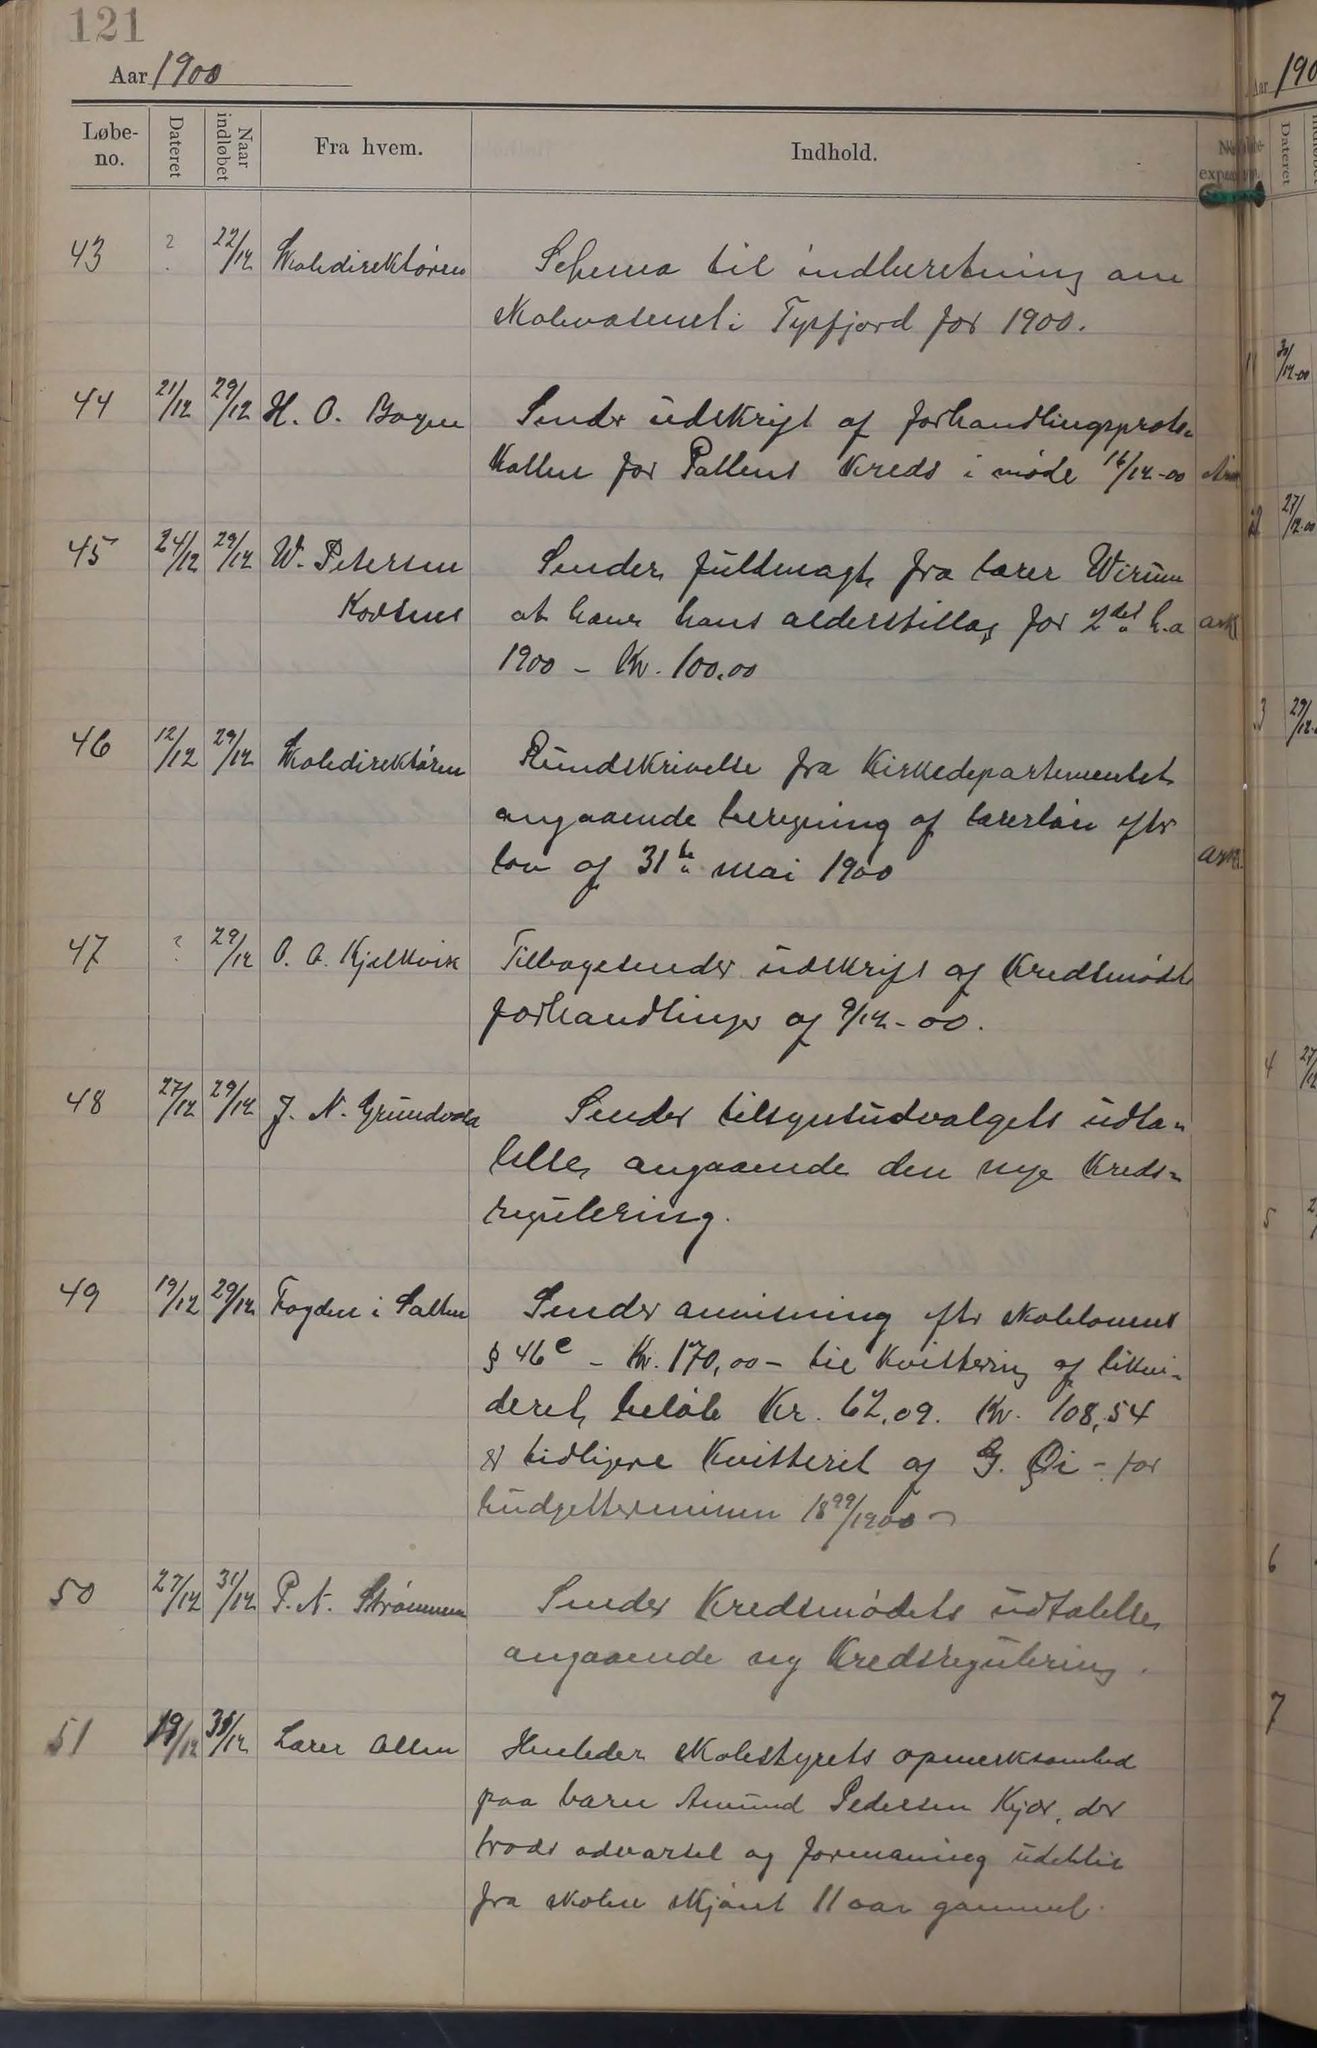 121
Aar 1900
Løbe-no. Dateret Naar indløbet Fra hvem. Indhold.
43 ? 22/12 Skoledirektøren Schema til indberetning om
skolevæsenet i Tysfjord for 1900.
44 21/12 29/12 H. O. Bogen Sender udskrift af forhandlingsproto-
kollen for Pollens Kreds i møde 16/12-00
45 24/12 29/12 W. Petersen Sender fuldmagt fra lærer Wirum
Korsnes at hæve hans alderstillæg for 2det h.a ark
1900 - Kr. 100,00
46 12/12 29/12 Skoledirektøren Rundskrivelse fra Kirkedepartementet
angaaende beregning af lærerløn efter
lov af 31te mai 1900 ark.
47 ? 29/12 O. A. Kjelkvik Tilbagesender udskrift af Kredsmøde
forhandlinger af 9/12-00.
48 27/12 29/12 J. N. Grundvola Sender tilsynsudvalgets udta-
lelse angaaende den nye Kreds-
regulering.
49 19/12 29/12 Fogden i Salten Sender anvisning efter skolelovens
§ 46 e - Kr. 170,00 - til Kvittering af likvi-
deret beløb Kr. 62,09. Kr. 108,54
er tidligere Kvitteret af G. Øi - for
budgetterminen 1899/1900
50 27/12 31/12 P. N. Strømmen Sender Kredsmødets udtalelse
angaaende ny Kredsregulering.
51 19/12 31/12 Lærer Olsen Henleder skolestyrets opmerksomhed
paa barn Amund Pedersen Kjær, der
trods advarsel og formaning udebliv
fra skolen skjønt 11 aar gammel.